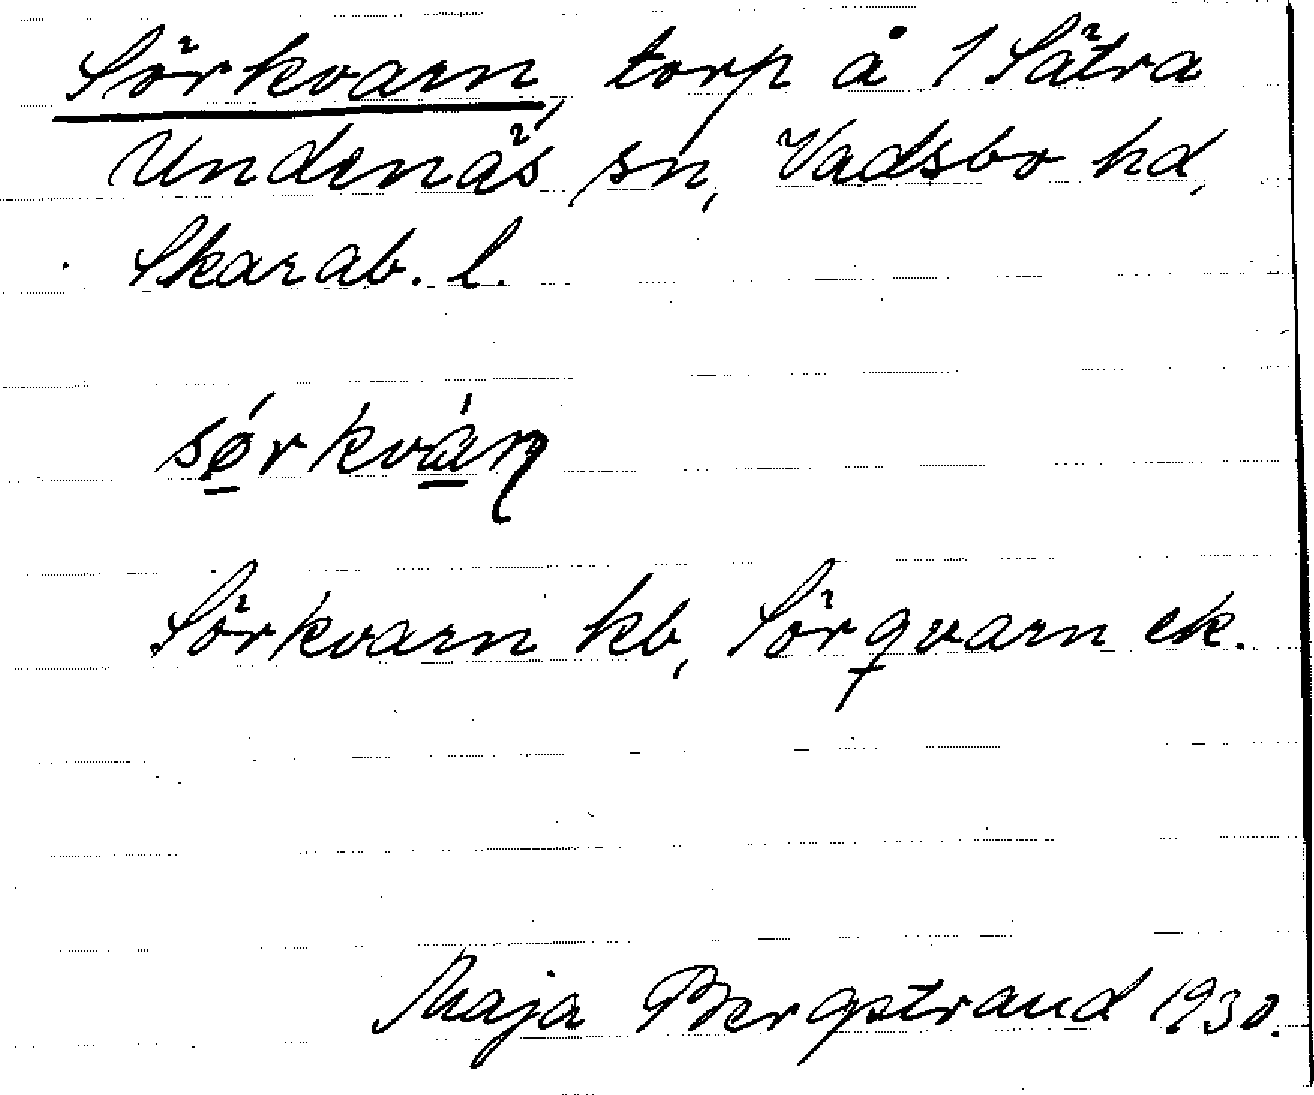 Sörkvarn, torp å 1 Sätra
Undenäs sn, Vadsbo hd,
Skarab. l.
sǿ̱rkvá̱ɳ
Sörkvarn kb, Sörqvarn ek.
Maja Bergstrand 1930.